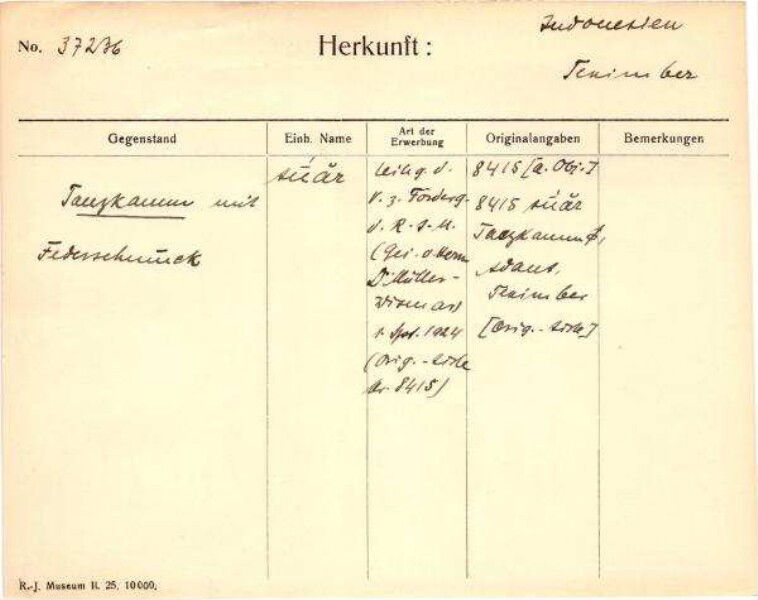 No. 37236
Herkunft:
Indonesien
Tenimber
Gegenstand
Einh. Name
Art der Erwerbung
Originalangaben
Bemerkungen
Tanzkamm mit
Federschmuck
súăr
Leihg. d.
V. z. Förderg.
d. R.-J.-M.
(Ges. v. Herrn
Dr Müller-
Wismar)
1. Spt. 1924
(Orig.-Liste
Nr. 8415)
8415 [a. Obj.]
8415 súăr
Tanzkamm
Adaut,
Tenimber
[Orig.-Liste]
R.-J. Museum II. 25. 10000.